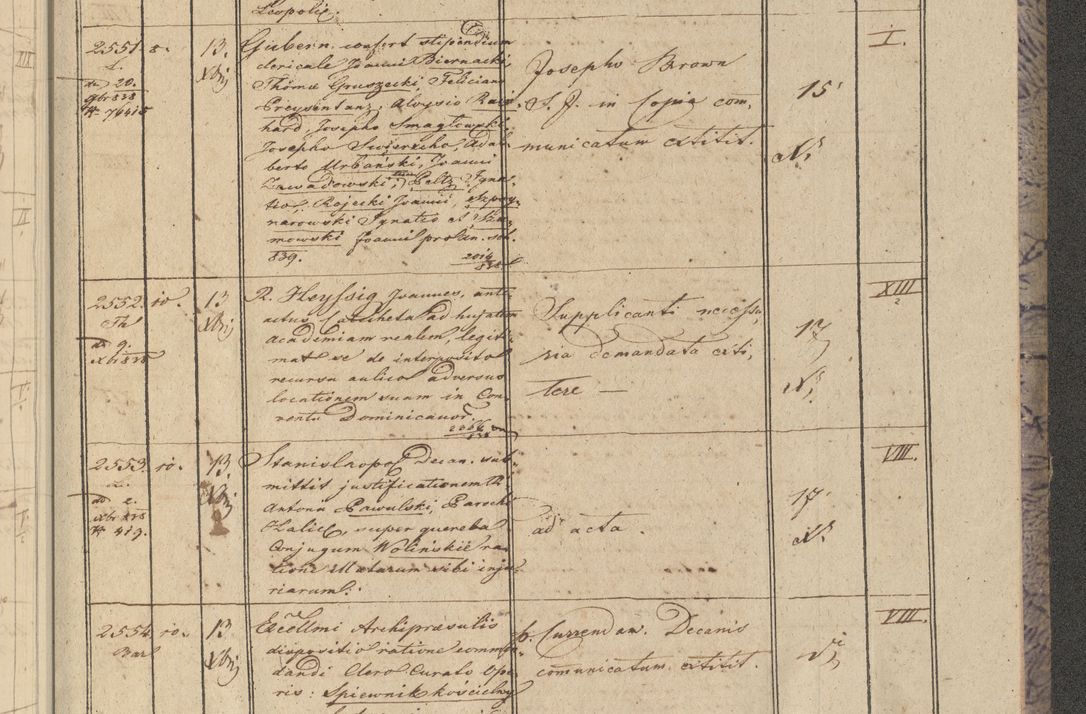 Leopolie.
I.
2551. 0.
L.
de 20.
9br 838
№ 74415
13.
Xbrj
Gubern. confert stipendium
clericale Joanni Biernacki,
Thomæ Gruszecki, Feliciano
Preysentanz, Aloysio Rein-
hard, Josepho Smagłowski,
Josepho Swierzcho, Adal-
berto Urbański, Joanni
Zawadowski, Peltz Igna-
tio, Rojecki Joanni, Szpoy-
narowski Ignatio et Sza-
mowski Joanni pro an. sch.
839.
2014
838
Josepho Brown
S. J. in Copia com-
municatum extitit.
15
XIII
2
2552. io.
Th
de 9.
xbr 838
13
Xbrj
R. Heyssig Joannes, ante-
actus Catecheta ad hujatem
academiam realem, legiti-
mat se de interposito
recursu aulico adversus
locationem suam in Con-
ventu Dominicanor.
2366
838
Supplicanti necessa-
ria demandata exti-
tere —
17
VIII.
2553. io.
L.
de 2.
xbr 838
№ 419.
13.
Xbrj
Stanislaopol Decan. sub-
mittit justificationem
Antona Pawulski, Parochi
Halic, super querela
Conjugum Wolińskie ra-
tione illatarum sibi inju-
riarum.
ad acta.
17
VIII.
2554. io.
Bar
13
Xbrj
Excellmi Archipræsulis
dispositio ratione commen-
dandi Clero Curato Ope-
ris: Spiewnik kościelny
p. Currendam Decanis
communicatum extitit.